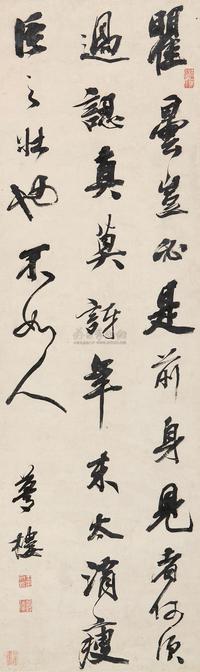 瞿曇豈必是前身見者何須
過認真莫訝年來太消瘦
臣之壯也不如人
夢樓